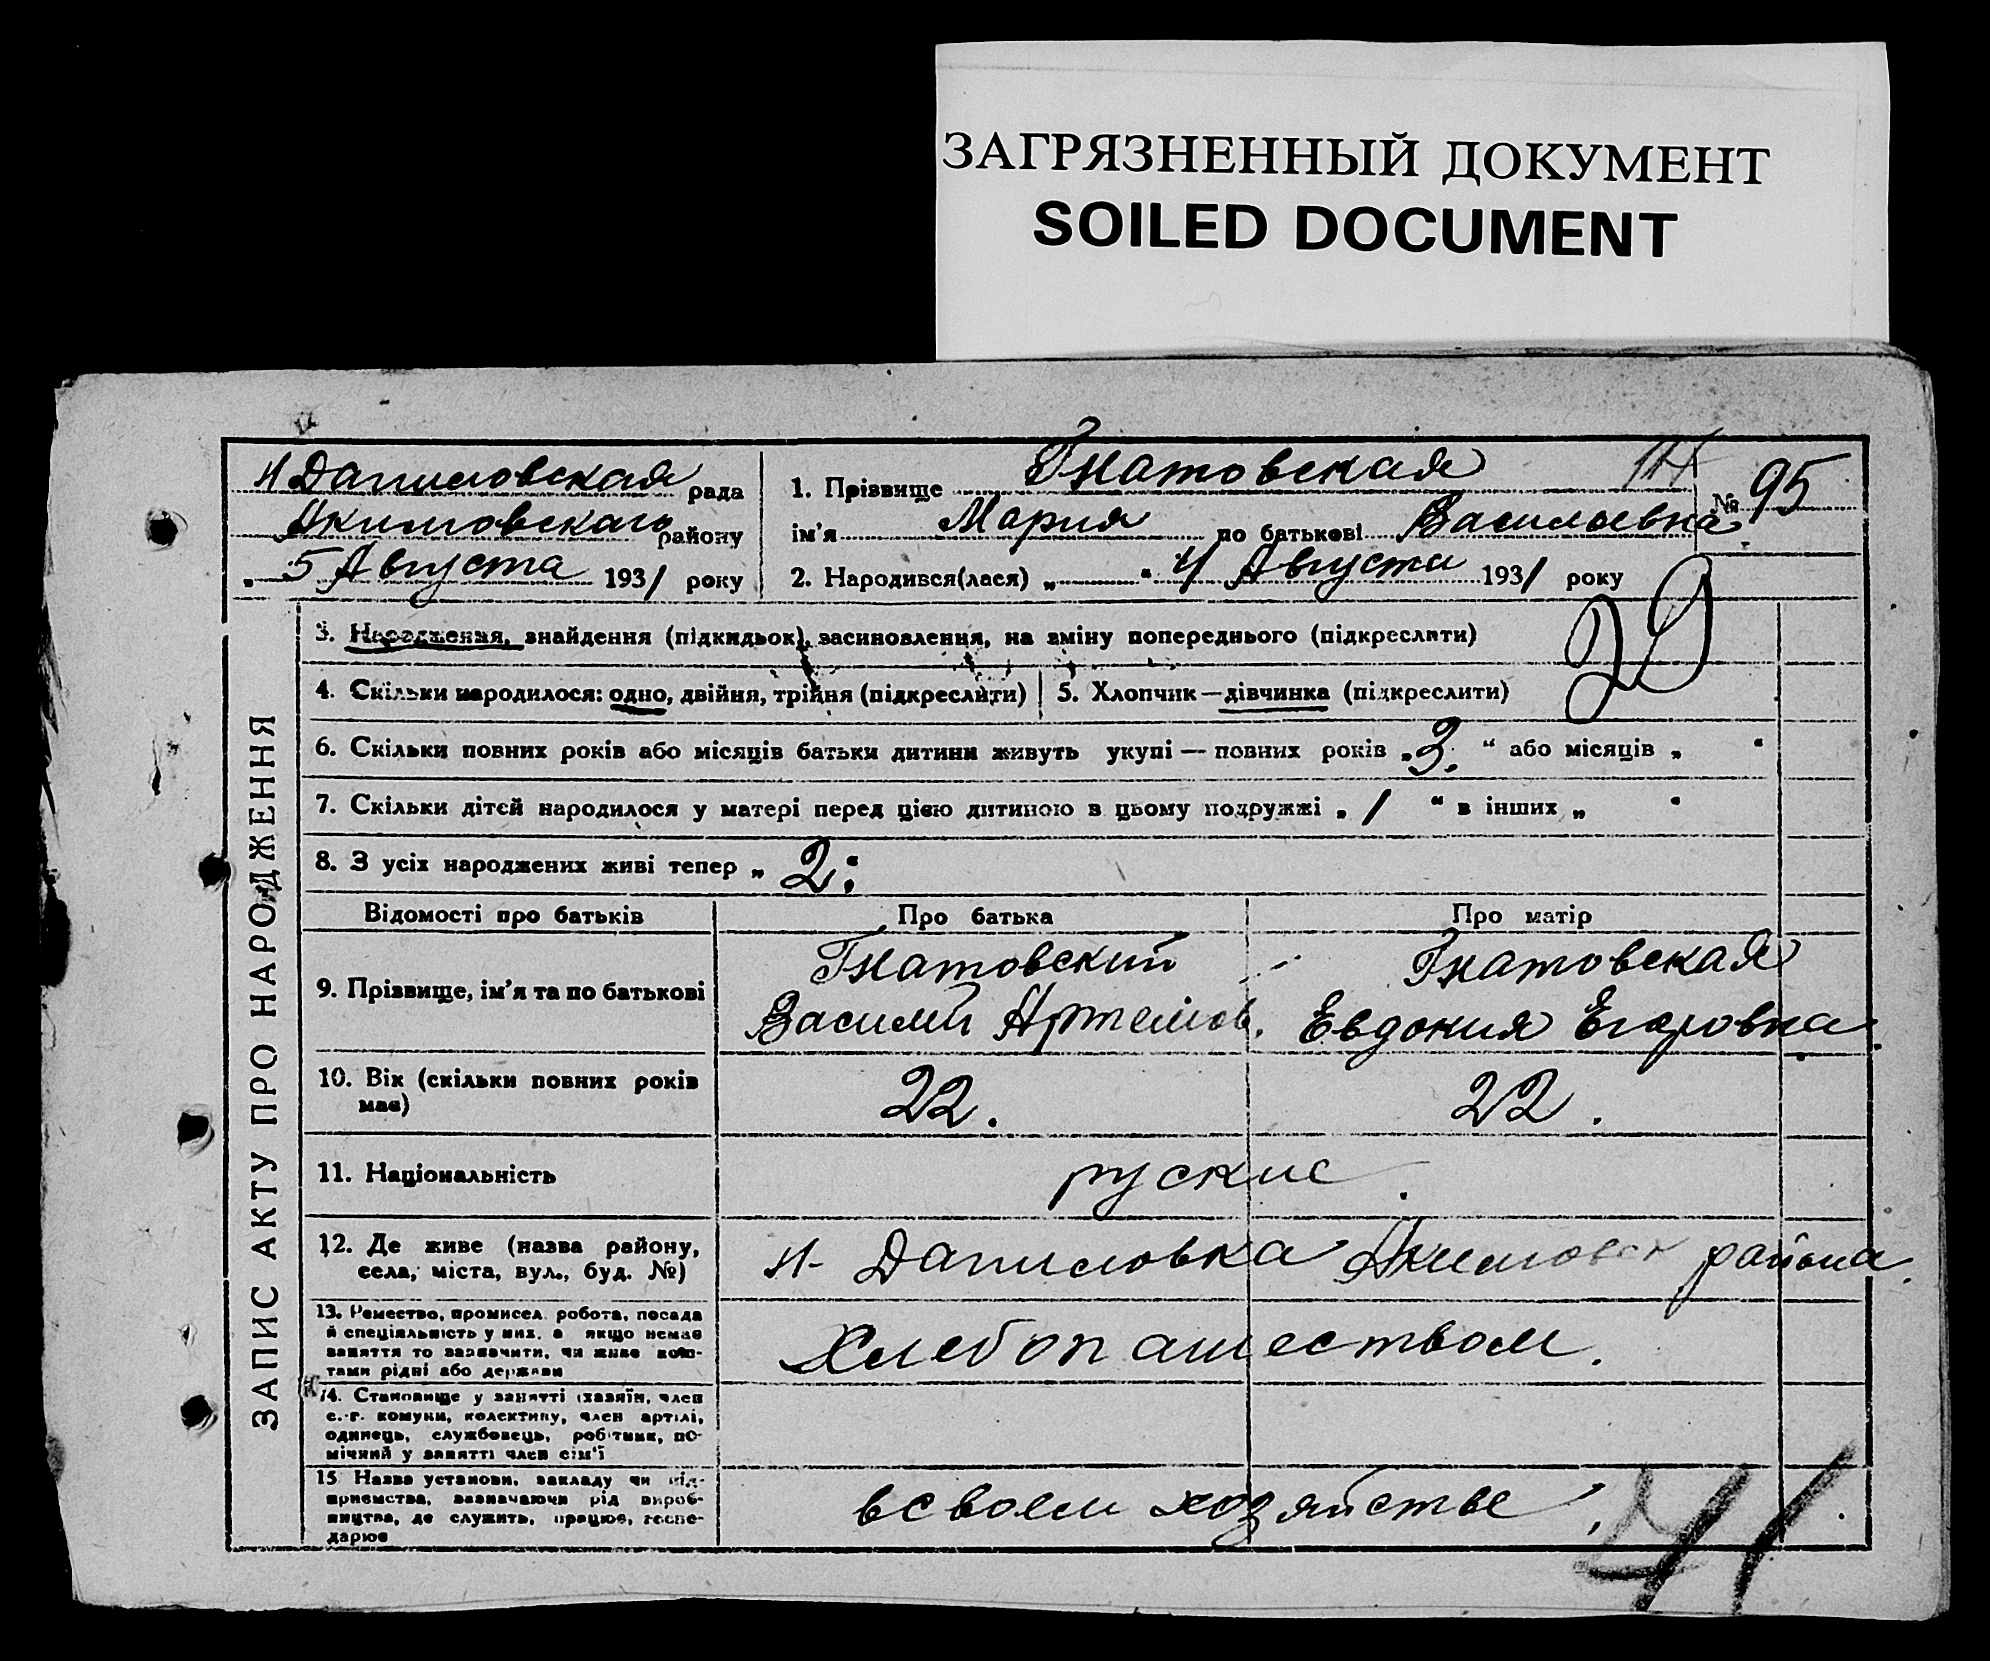 ЗАГРЯЗНЕННЫЙ ДОКУМЕНТ
SOILED DOCUMENT
Н Даниловская рада
Акимовскаго району
„ 5 Августа 1931 року
1. Прізвище Гнатовская
№ 95
ім'я Мария по батькові Васильевна
2. Народився(лася) „ “ 4 Августа 1931 року
29
ЗАПИС АКТУ ПРО НАРОДЖЕННЯ
3. Народження, знайдення (підкидьок), засиновлення, на зміну попереднього (підкреслити)
4. Скільки народилося: одно, двійня, трійня (підкреслити) 5. Хлопчик — дівчинка (підкреслити)
6. Скільки повних років або місяців батьки дитини живуть укупі — повних років „3. “ або місяців „ “
7. Скільки дітей народилося у матері перед цією дитиною в цьому подружжі „ 1 “ в інших „ “
8. З усіх народжених живі тепер „ 2:
Відомості про батьків Про батька Про матір
9. Прізвище, ім'я та по батькові
Гнатовский
Василий Артемов.
Гнатовская
Евдокия Егоровна.
10. Вік (скільки повних років
має)
22. 22.
11. Національність
руские.
12. Де живе (назва району,
села, міста, вул., буд. №)
Н- Даниловка Акимовск района.
13. Ремество, промисел, робота, посада
й спеціяльність у них, а якщо немає
заняття то зазначити, чи живе кош-
тами рідні або держави
Хлебопашеством.
14. Становище у занятті (хазяїн, член
с.-г. комуни, колективу, член артілі,
одинець, службовець, робітник, по-
мічний у занятті член сім'ї
15 Назва установи, закладу чи під-
приємства, зазначаючи рід вироб-
ництва, де служить, працює, госпо-
дарює
в своем хозяйстве.
41